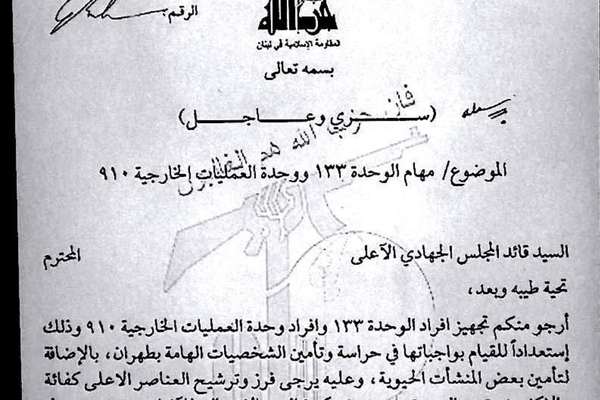 الرقم:
حزب الله
المقاومة الإسلامية في لبنان
بسمه تعالى
(ســـــري وعـــاجـــــل)
فإن حزب الله هم الغالبون
الموضوع/ مهام الوحدة ١٣٣ ووحدة العمليات الخارجية ٩١٠
السيد قائد المجلس الجهادي الآعلى المحترم
تحية طيبه وبعد،
أرجو منكم تجهيز افراد الوحدة ١٣٣ وافراد وحدة العمليات الخارجية ٩١٠ وذلك
إستعداداً للقيام بواجباتها في حراسة وتأمين الشخصيات الهامة بطهران، بالإضافة
لتأمين بعض المنشآت الحيوية، وعليه يرجى فرز وترشيح العناصر الاعلى كفائة